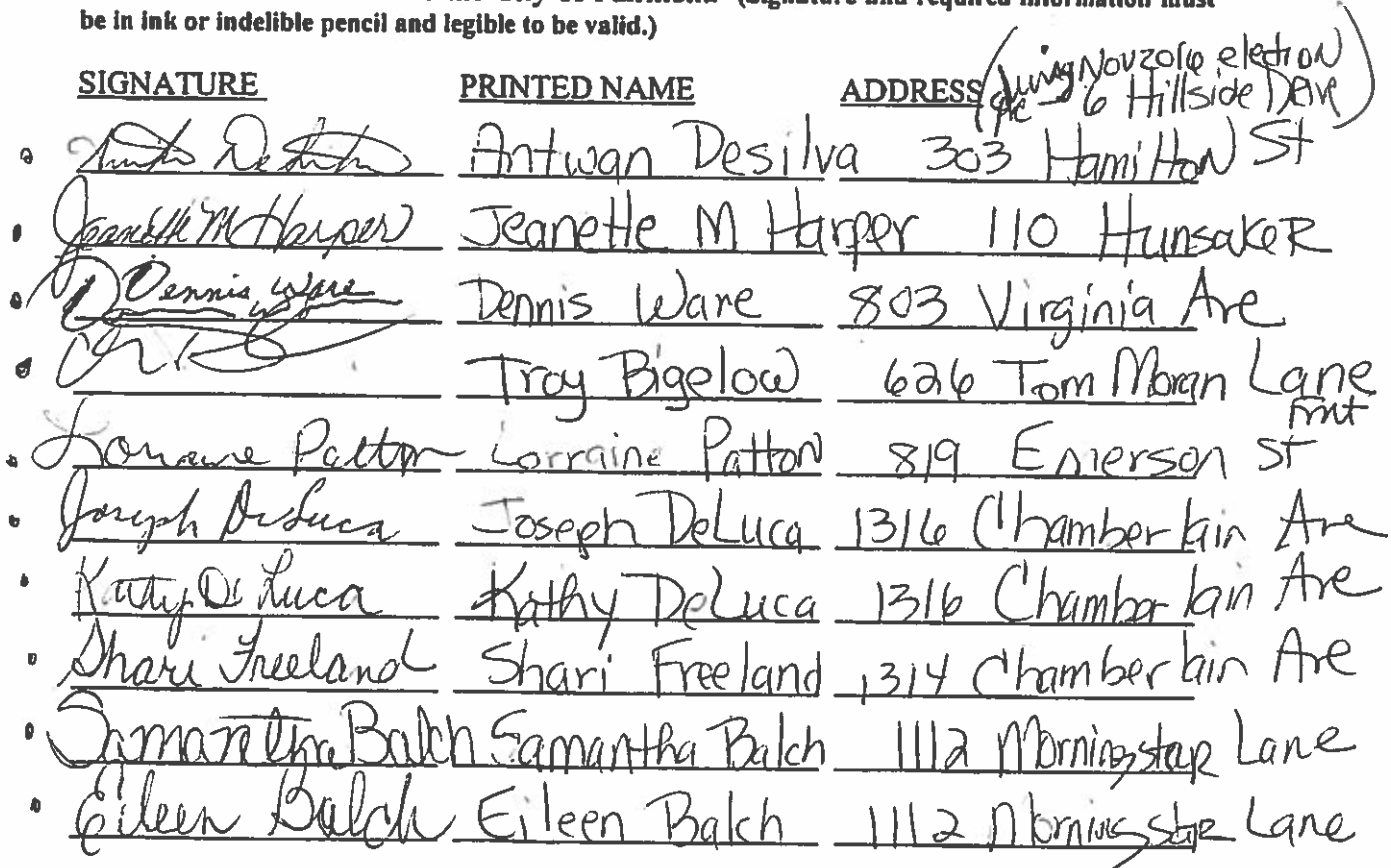 (Signature and required information must
be in ink or indelible pencil and legible to be valid.)
SIGNATURE PRINTED NAME ADDRESS
Nov 2016 election
6 Hillside Drive)
Antwan Desilva 303 Hamilton St
Jeanette M Harper Jeanette M Harper 110 Hunsaker
Dennis Ware Dennis Ware 803 Virginia Ave
Troy Bigelow 626 Tom Moran Lane
Fmt
Lorraine Patton Lorraine Patton 819 Emerson St
Joseph DeLuca Joseph DeLuca 1316 Chamberlain Ave
Kathy DeLuca Kathy DeLuca 1316 Chamberlain Ave
Shari Freeland Shari Freeland 1314 Chamberlain Ave
Samantha Balch Samantha Balch 1112 Morningstar Lane
Eileen Balch Eileen Balch 1112 Morningstar Lane